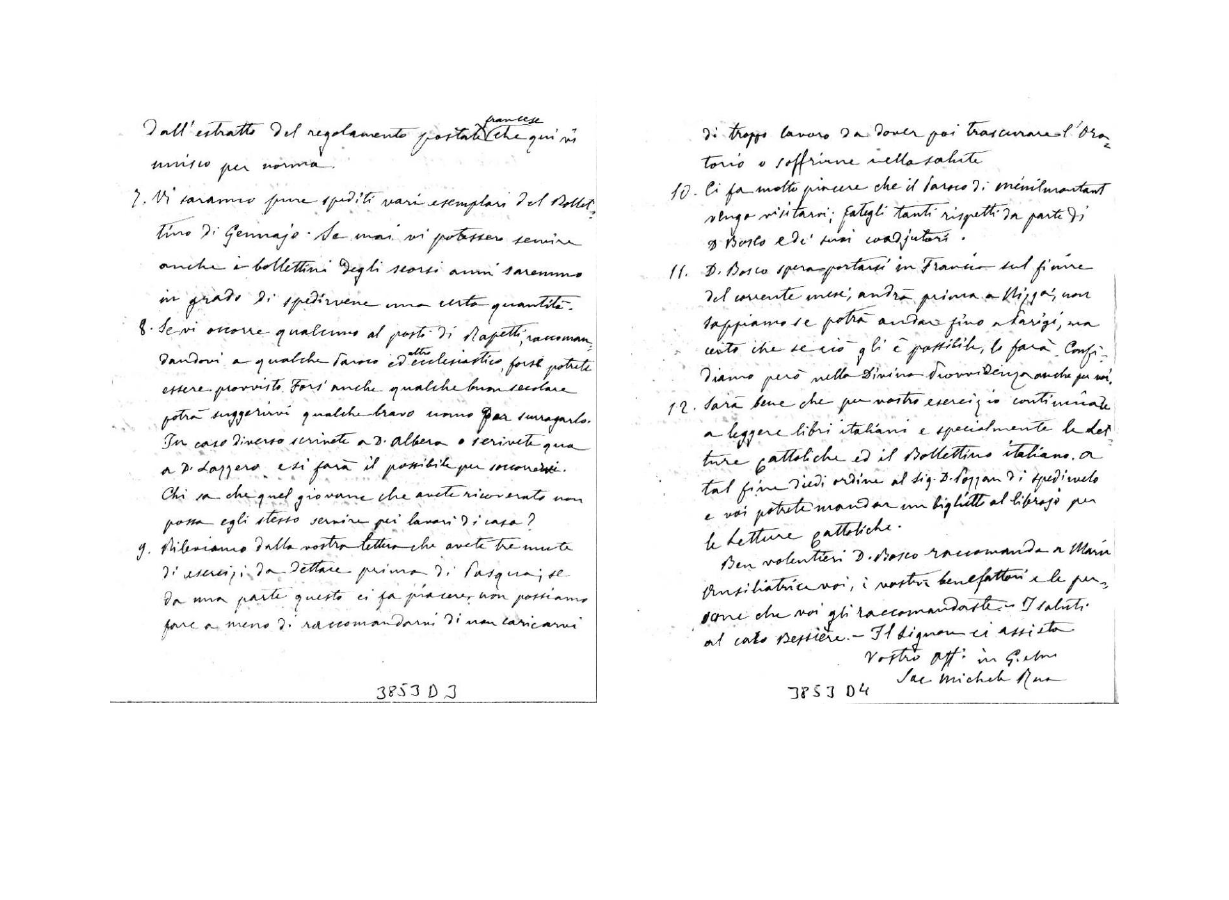 francese
Dall'estratto del regolamento postale che qui vi
unisco per norma.
7. Vi saranno pure spediti vari esemplari del Bollet-
tino di Gennajo. Se mai vi potessero servire
anche i bollettini degli scorsi anni saremmo
in grado di spedirvene una certa quantità.
8. Se vi occorre qualcuno al posto di Rapetti, raccoman-
dandovi a qualche Paroco ed altro ecclesiastico, forse potrete
essere provvisto. Fors'anche qualche buon secolare
potrà suggerirvi qualche bravo uomo per surrogarlo.
In caso diverso scrivete a D. Albera o scrivete qua
a D. Lazzero, e si farà il possibile per soccorrervi.
Chi sa che quel giovane che avete ricoverato non
possa egli stesso servire pei lavori di casa?
9. Rileviamo dalla vostra lettera che avete tre mute
di esercizi da dettare prima di Pasqua; se
da una parte questo ci fa piacere, non possiamo
fare a meno di raccomandarvi di non caricarvi
3853 D 3
di troppo lavoro da dover poi trascurare l'Ora-
torio o soffrirne nella salute
10. Ci fa molto piacere che il Paroco di Ménilmontant
venga visitarvi; fategli tanti rispetti da parte di
D Bosco e de' suoi coadjutori.
11. D. Bosco spera portarsi in Francia sul finire
del corrente mese; andrà prima a Nizza, non
sappiamo se potrà andar fino a Parigi, ma
certo che se ciò gli è possibile, lo farà. Confi-
diamo però nella Divina Provvidenza anche per voi.
12. Sarà bene che per vostro esercizio continuiate
a leggere libri italiani e specialmente le Let-
ture Cattoliche ed il Bollettino italiano. A
tal fine diedi ordine al Sig. D. Bozzan di spedirvelo
e voi potrete mandar un biglietto al librajo per
le Letture Cattoliche.
Ben volentieri D. Bosco raccomanda a Maria
Ausiliatrice voi, i vostri benefattori e le per-
sone che voi gli raccomandaste. - I saluti
al caro Bessière. - Il Signore ci assista
Vostro aff. in G. e M.
Sac. Michele Rua
3853 D4